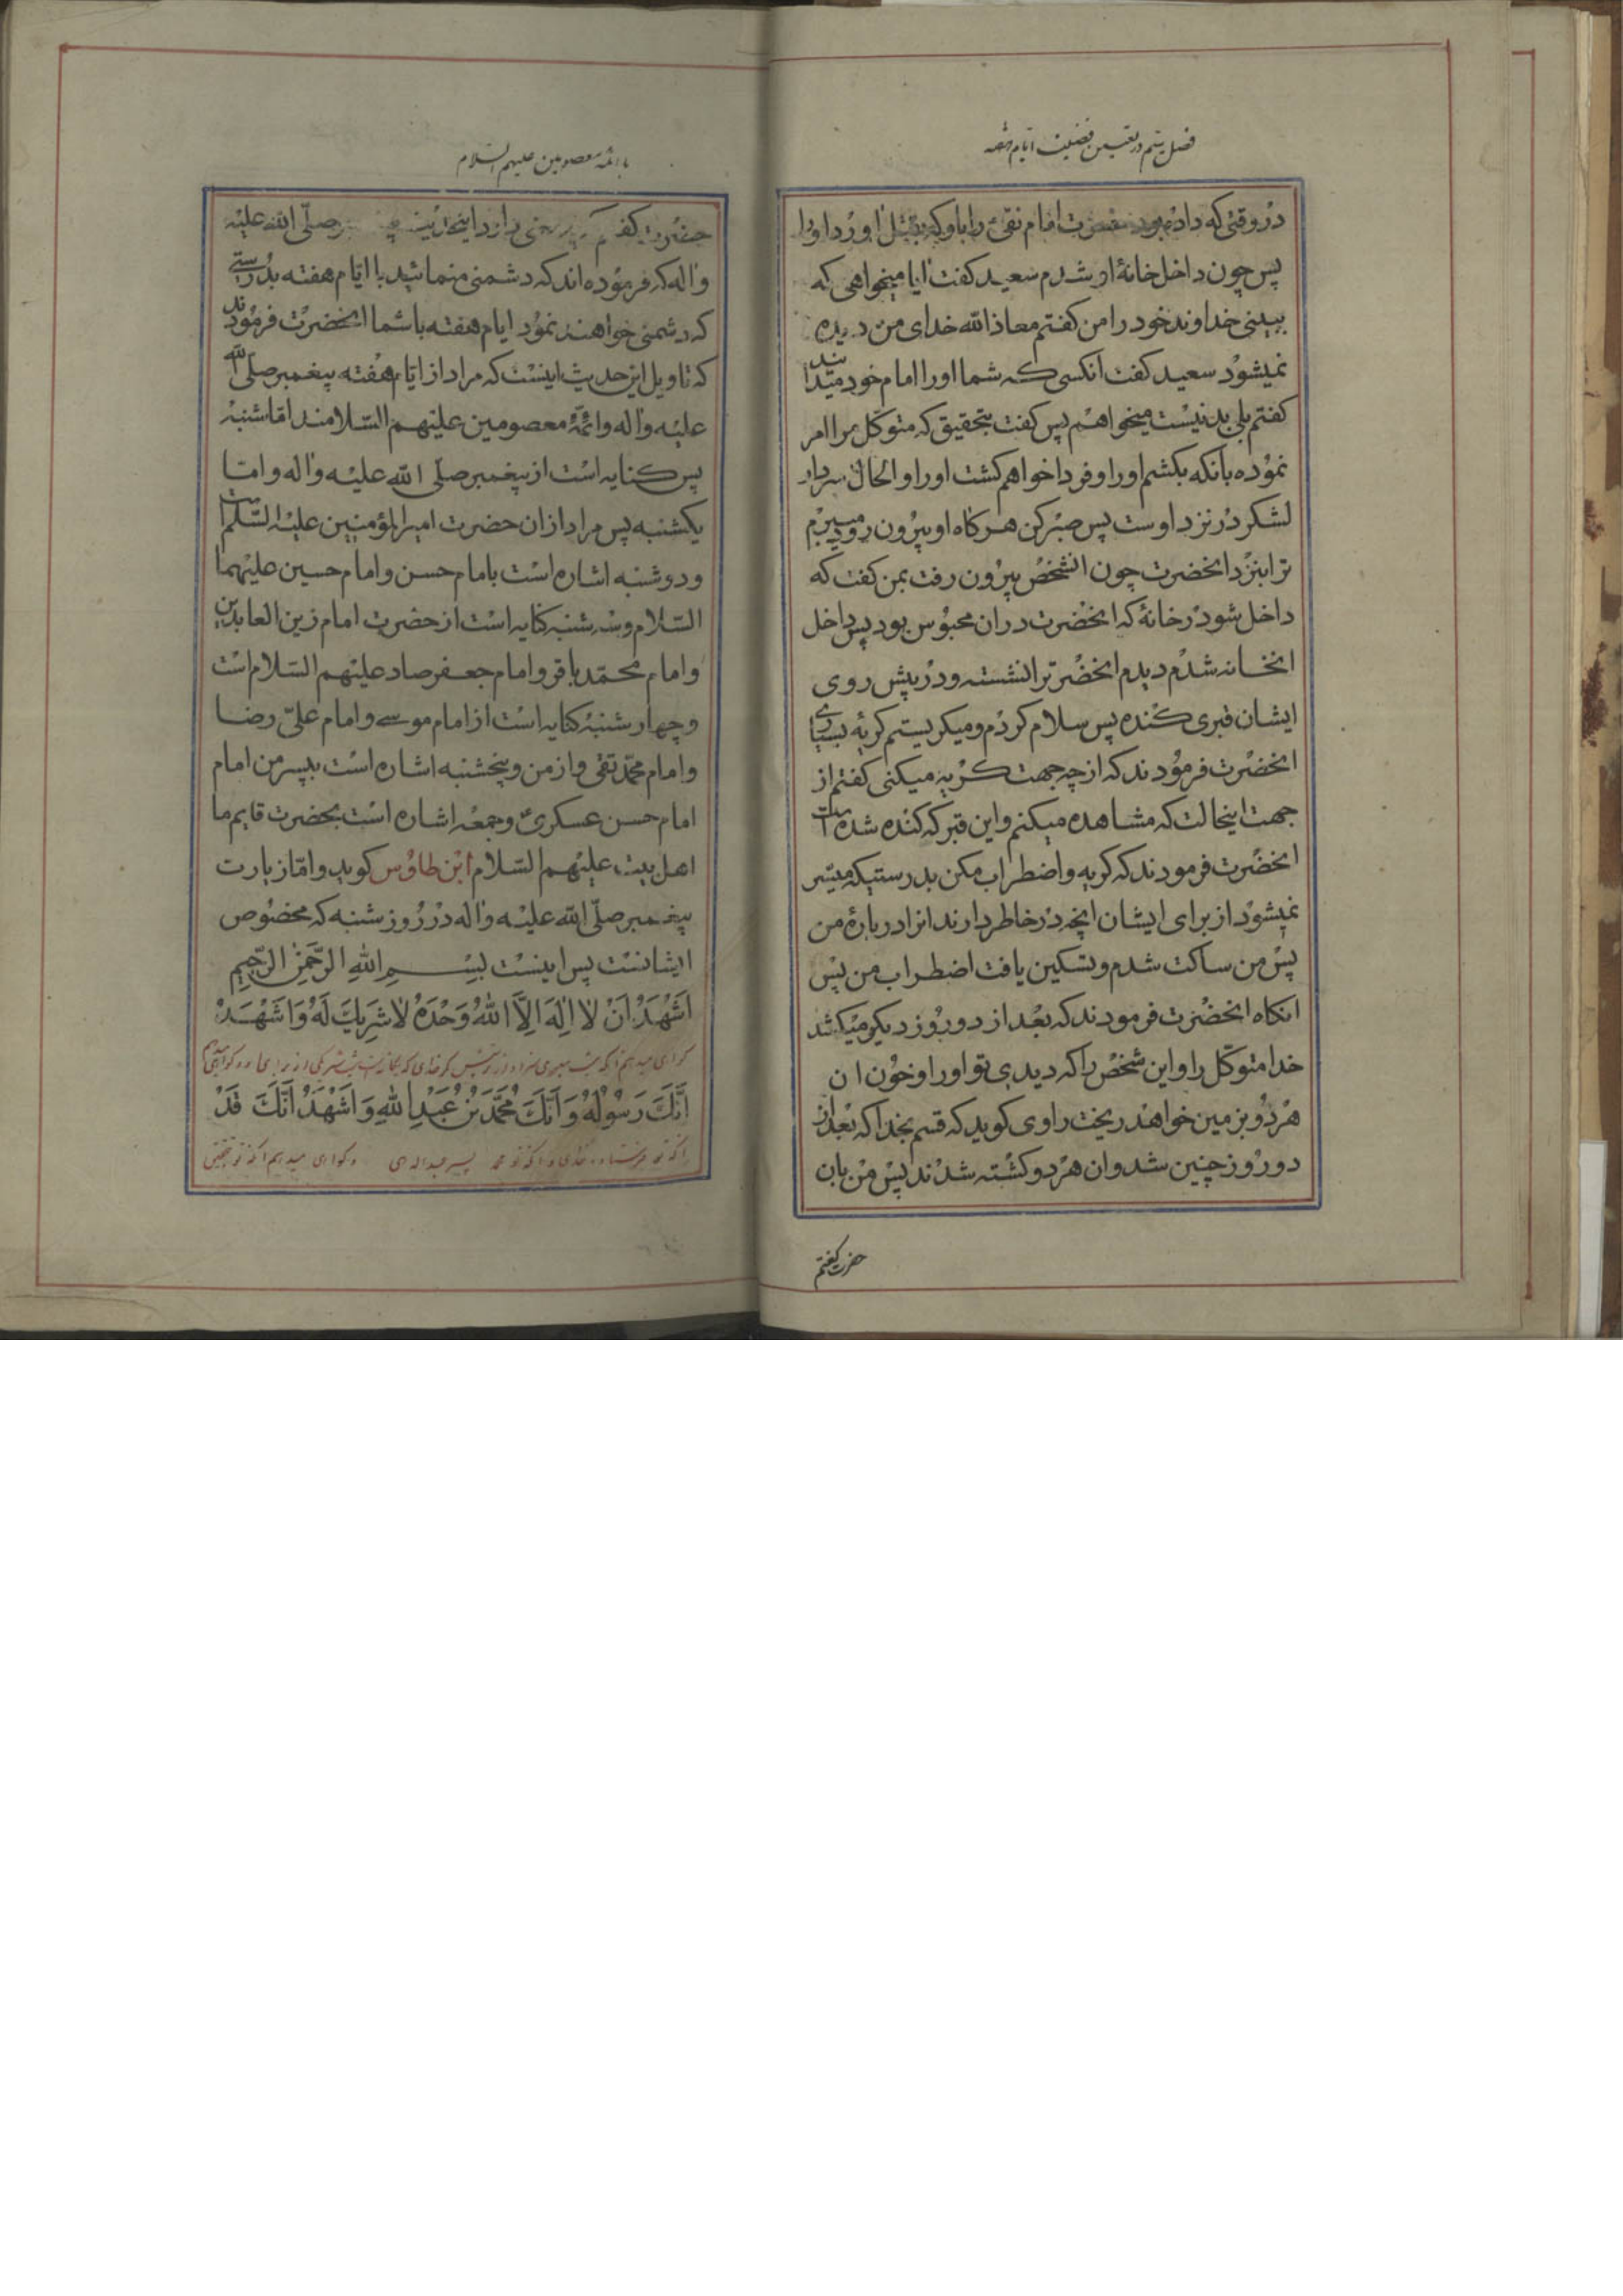 فصل بیستم در تعیین فضیلت ایام هفته
در وقتی که داده بود حضرت امام نقی را باو که بقتل اورد او را
پس چون داخل خانهٔ او شدم سعید کفت ایا میخواهی که
ببینی خداوند خود را من کفتم معاذ الله خدای من دیده
نمیشود سعید کفت انکسی که شما او را امام خود میدانید
کفتم بلی بد نیست میخواهم پس کفت بتحقیق که متوکل مرا امر
نموده بانکه بکشم او را و فردا خواهم کشت او را و الحال سردار
لشکر در نزد اوست پس صبر کن هر کاه او بیرون رود میبرم
ترا بنزد انحضرت چون الشخص بیرون رفت بمن کفت که
داخل شو در خانهٔ که انحضرت در ان محبوس بود پس داخل
انخانه شدم دیدم انحضرترا نشسته و در پیش روی
ایشان قبری کنده پس سلام کردم و میکریستم کریهٔ بسیاری
انحضرت فرمودند که از چه جهت کریه میکنی کفتم از
جهت اینحالت که مشاهده میکنم و این قبر که کنده شده است
انحضرت فرمودند که کریه و اضطراب مکن بدرستیکه میسر
نمیشود از برای ایشان انچه در خاطر دارند انرا در بارهٔ من
پس من ساکت شدم و تسکین یافت اضطراب من پس
انکاه انحضرت فرمودند که بعد از دو روز دیکر میکشد
خدا متوکل را و این شخص را که دیدی تو او را و خون ان
هر دو بزمین خواهند ریخت راوی کوید که قسم بخدا که بعد از
دو روز چنین شد و ان هر دو کشته شدند پس من بان
حضرت کفتم
با ائمه معصومین علیهم السلام
حضرت کفتم دارد اینحدیث صلی الله علیه
واله که فرموده اند که دشمنی منمائید با ایام هفته بدرستی
که دشمنی خواهند نمود ایام هفته باشما انحضرت فرمودند
که تاویل این حدیث اینست که مراد از ایام هفته پیغمبر صلی الله
علیه واله و ائمهٔ معصومین علیهم السلامند اما شنبه
پس کنایه است از پیغمبر صلی الله علیه واله و اما
یکشنبه پس مراد از ان حضرت امیر المؤمنین علیه السلام است
و دوشنبه اشاره است بامام حسن و امام حسین علیهما
السلام و سه شنبه کنایه است از حضرت امام زین العابدین
و امام محمد باقر و امام جعفر صاد علیهم السلام است
و چهار شنبه کنایه است از امام موسی و امام علی رضا
و امام محمد تقی و از من و پنجشنبه اشاره است بپسر من امام
امام حسن عسکری و جمعه اشاره است بحضرت قایم ما
اهل بیت علیهم السلام ابن طاوس کوید و اما زیارت
پیغمبر صلی الله علیه واله در روز شنبه که مخصوص
ایشانست پس اینست بسم الله الرحمن الرحیم
اَشْهَدُ اَنْ لا اِلهَ اِلاَّ اللهُ وَحْدَهُ لا شَریكَ لَهُ وَاَشْهَدُ
اَنَّكَ رَسُولُهُ وَاَنَّكَ مُحَمَّدُ بْنُ عَبْدِ اللهِ وَاَشْهَدُ اَنَّكَ قَدْ